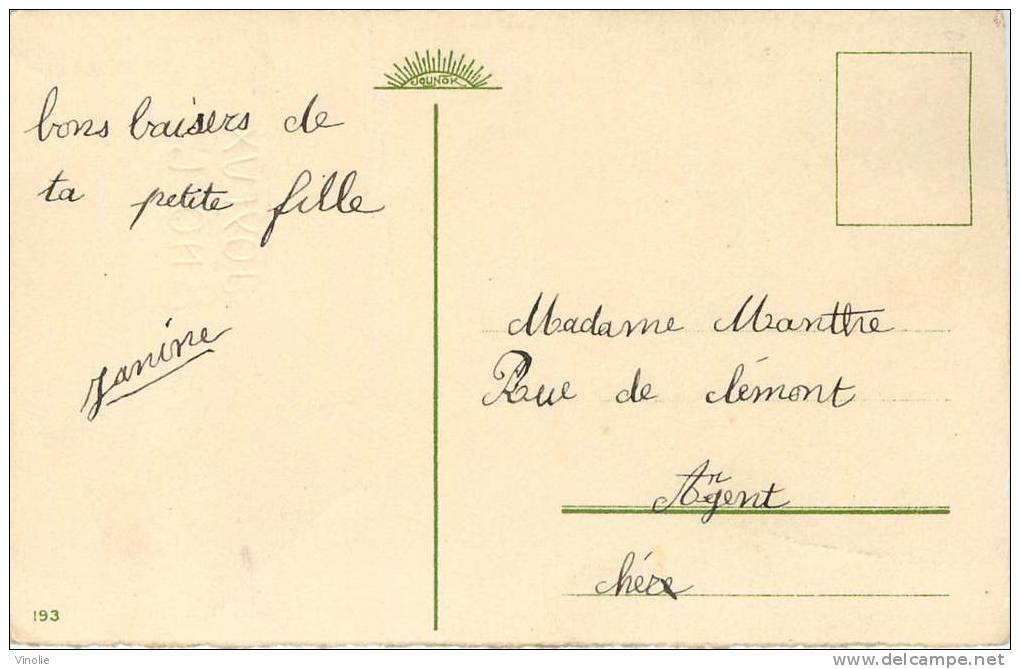 JOUNOK
bons baisers de
ta petite fille
Janine
Madame Manthre
Rue de clémont
Argent
chére
193
Vinolie
www.delcampe.net